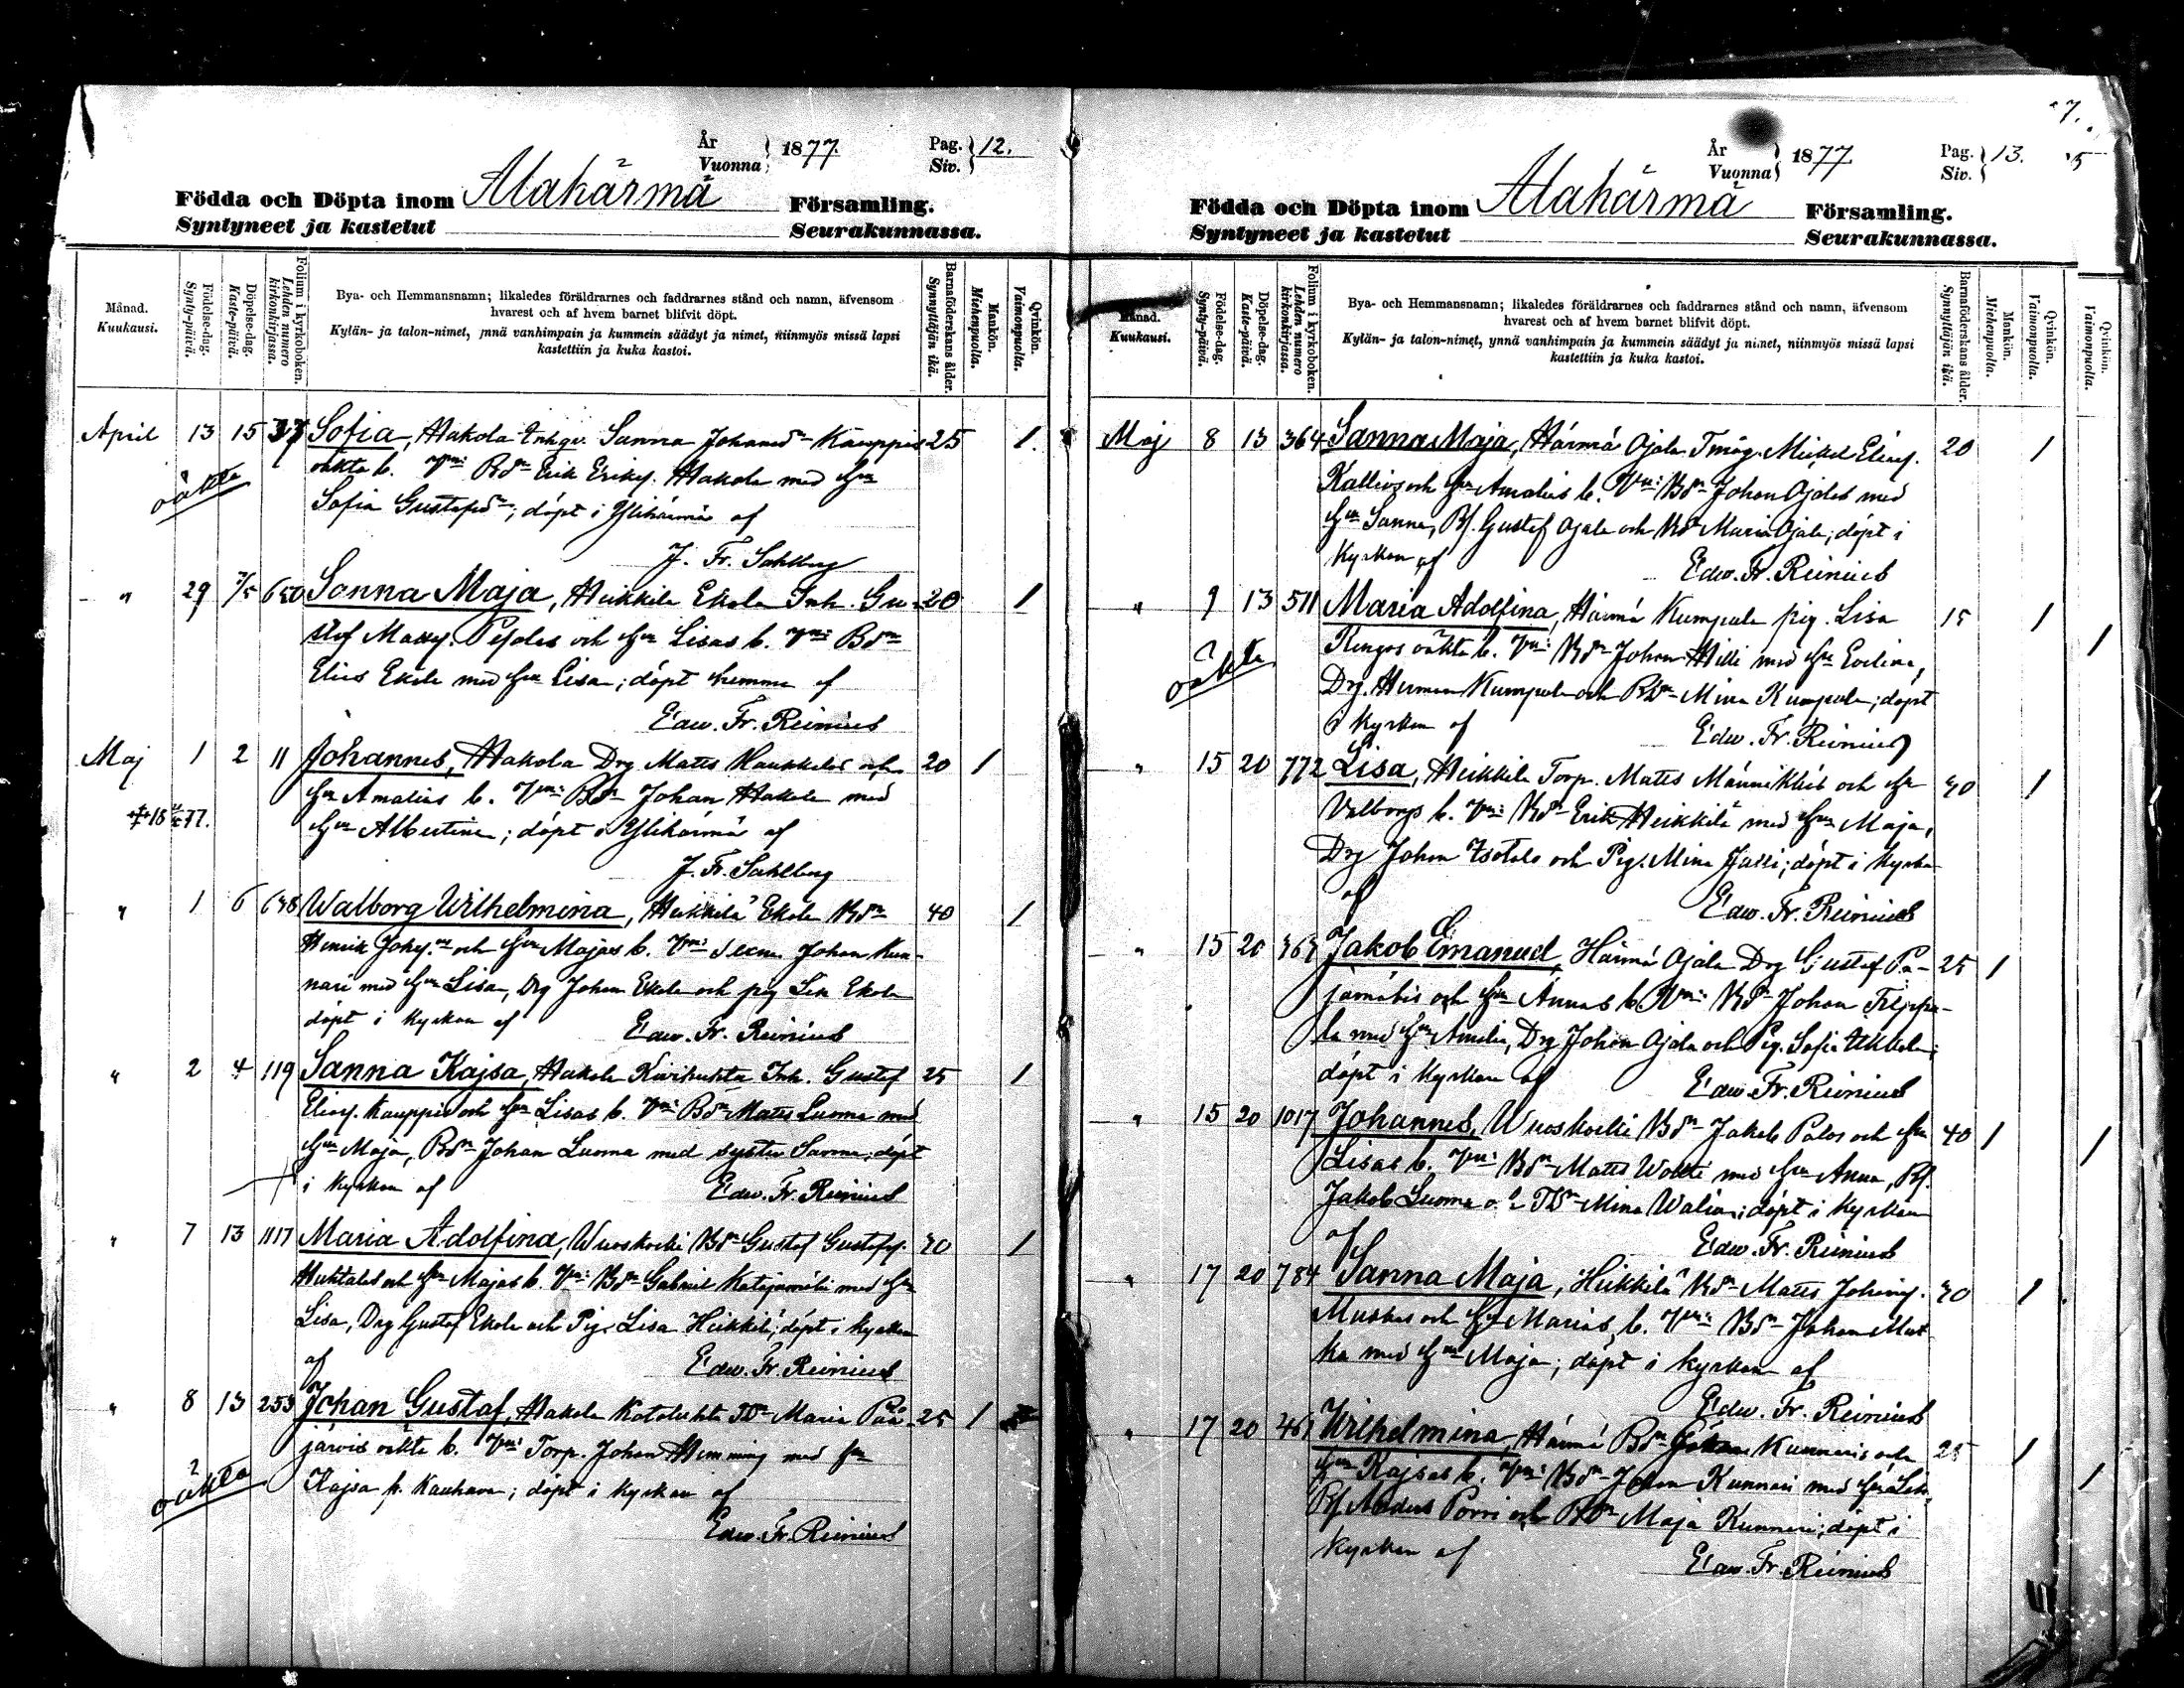 År
Vuonna
1877.
Pag.
Siv.
12.
Födda och Döpta inom Alahärmä Församling.
Syntyneet ja kastetut Seurakunnassa.
Månad.
Kuukausi.
Födelse-dag.
Synty-päivä.
Döpelse-dag.
Kaste-päivä.
Folium i kyrkoboken.
Lehden numero kirkonkirjassa.
Bya- och Hemmansnamn; likaledes föräldrarnes och faddrarnes stånd och namn, äfvensom
hvarest och af hvem barnet blifvit döpt.
Kylän- ja talon-nimet, ynnä vanhimpain ja kummein säädyt ja nimet, niinmyös missä lapsi
kastettiin ja kuka kastoi.
Barnaföderskans ålder.
Synnyttäjän ikä.
Mankön.
Miehenpuolta.
Qvinkön.
Vaimonpuolta.
April 13 15 37 Sofia, Hakola Enkqv. Sanna Johansdr Kauppis 25 1.
oäkta b. Vni: Bdn Erik Eriks. Hakola med hu
oäkta
Sofia Gustafsdr; döpt i Ylihärmä af
J. Fr. Sahlberg
" 29 2/5 650 Sanna Maja, Heikkilä Ekola Inh. Gu- 20 1
staf Matts. och hu Lisas b. Vni: Bdn
Elias Ekola med hu Lisa; döpt hemma af
Edw. Fr. Reinius
Maj 1 2 11 Johannes, Hakola Drg Matts och 20 1
hu Amalias b. Vni: Bdn Johan Hakola med
77.
hu Albertina; döpt i Ylihärmä af
J. Fr. Sahlberg
" 1 6 638 Walborg Wilhelmina, Heikkilä Ekola Bdn 40 1
Henrik och hu Majas b. Vni: Johan Kun-
nari med hu Lisa, Drg Johan Ekola och pig Ekola
döpt i kyrkan af
Edw. Fr. Reinius
" 2 4 119 Sanna Kajsa, Hakola Kiviluhta Inh. Gustaf 25 1
Elias. Kauppis och hu Lisas b. Vni: Bdn Matts Luoma med
hu Maja, Bdn Johan Luoma med syster Sanna; döpt
i kyrkan af
Edw. Fr. Reinius
" 7 13 1117 Maria Adolfina, Wuoskoski Bdn Gustaf Gustafs. 30 1
Huhtalas och hu Majas b. Vni: Bdn Gabriel Katajamäki med hu
Lisa, Drg Gustaf Ekola och Pig. Lisa Heikkilä; döpt i kyrkan
af
Edw. Fr. Reinius
" 8 13 253 Johan Gustaf, Hakola Katoluhta TDr Maria Pää- 25 1
järvis oäkta b. Vni: Torp. Johan Hemming med hu
oäkta
Kajsa fr. Kauhava; döpt i kyrkan af
Edw. Fr. Reinius
År
Vuonna
1877.
Pag.
Siv.
13.
Födda och Döpta inom Alahärmä Församling.
Syntyneet ja kastetut Seurakunnassa.
Månad.
Kuukausi.
Födelse-dag.
Synty-päivä.
Döpelse-dag.
Kaste-päivä.
Folium i kyrkoboken.
Lehden numero kirkonkirjassa.
Bya- och Hemmansnamn; likaledes föräldrarnes och faddrarnes stånd och namn, äfvensom
hvarest och af hvem barnet blifvit döpt.
Kylän- ja talon-nimet, ynnä vanhimpain ja kummein säädyt ja nimet, niinmyös missä lapsi
kastettiin ja kuka kastoi.
Barnaföderskans ålder.
Synnyttäjän ikä.
Mankön.
Miehenpuolta.
Qvinkön.
Vaimonpuolta.
Qvinkön.
Vaimonpuolta.
Maj 8 13 364 Sanna Maja, Härmä Ojala Tmåg. Mickel Elias. 20 1
Kallios och hu Amalias b. Vni: Bdn Johan Ojalas med
hu Sanna, Bs. Gustaf Ojala och Bdr Maria Ojala; döpt i
kyrkan af
Edw. Fr. Reinius
" 9 13 511 Maria Adolfina, Härmä Kumpula pig. Lisa 15 1
oäkta b. Vni: Bdn Johan Hilli med hu Evelina,
oäkta
Drg. Herman Kumpula och Bdr Mina Kumpula; döpt
i kyrkan af
Edw. Fr. Reinius
" 15 20 772 Lisa, Heikkilä Torp. Matts och hu 30 1
Valborgs b. Vni: Bdn Erik Heikkilä med hu Maja,
Drg Johan Isotalo och Pig. Mina; döpt i kyrkan
af
Edw. Fr. Reinius
" 15 20 363 Jakob Emanuel, Härmä Ojala Drg Gustaf Pa- 25 1
jamäkis och hu Annas b. Vni: Bdn Johan Filppu-
la med hu Amalia, Drg Johan Ojala och Pig. Sofia;
döpt i kyrkan af
Edw. Fr. Reinius
" 15 20 1017 Johannes, Wuoskoski Bdn Jakob Palos och hu 40 1
Lisas b. Vni: Bdn Matts Wolti med hu Anna, Bs.
Jakob Luoma och TDr Mina; döpt i kyrkan
af
Edw. Fr. Reinius
" 17 20 784 Sanna Maja, Heikkilä Bdn Matts Johans. 30 1
Muskas och hu Marias b. Vni: Bdn Johan Mus-
ka med hu Maja; döpt i kyrkan af
Edw. Fr. Reinius
" 17 20 461 Wilhelmina, Härmä Bdn Johan Kunnaris och 25 1
hu Kajsas b. Vni: Bdn Johan Kunnari med hu Lisa,
Bs Anders Porri och Bdr Maja Kunnari; döpt i
kyrkan af
Edw. Fr. Reinius